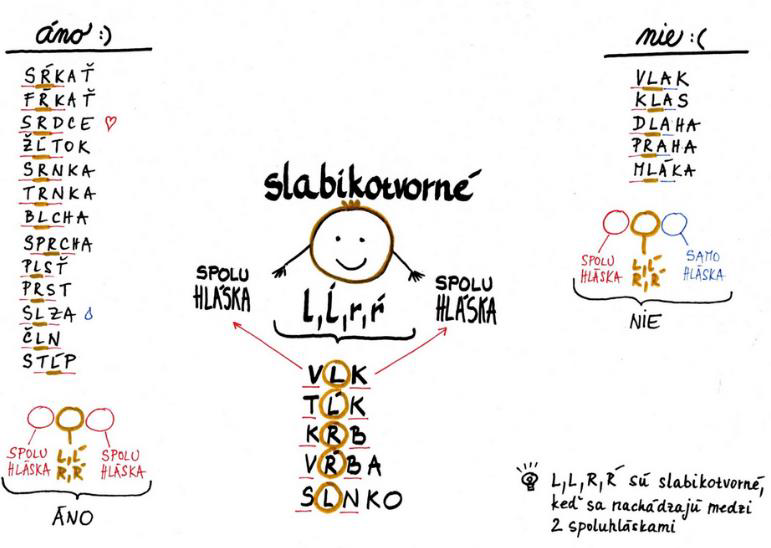 áno :)
SŔKAŤ
FŔKAŤ
SRDCE
ŽĹTOK
SRNKA
TRNKA
BLCHA
SPRCHA
PLSŤ
PRSŤ
SLZA
ČLN
STĹP
SPOLU
HLÁSKA
L, Ĺ
R, Ŕ
SPOLU
HLÁSKA
ÁNO
slabikotvorné
SPOLU
HLÁSKA
l, ĺ, r, ŕ
SPOLU
HLÁSKA
VLK
TĹK
KRB
VŔBA
SLNKO
nie :(
VLAK
KLAS
DLAHA
PRAHA
MLÁKA
SPOLU
HLÁSKA
L, Ĺ
R, Ŕ
SAMO
HLÁSKA
NIE
L, Ĺ, R, Ŕ sú slabikotvorné,
keď sa nachádzajú medzi
2 spoluhláskami